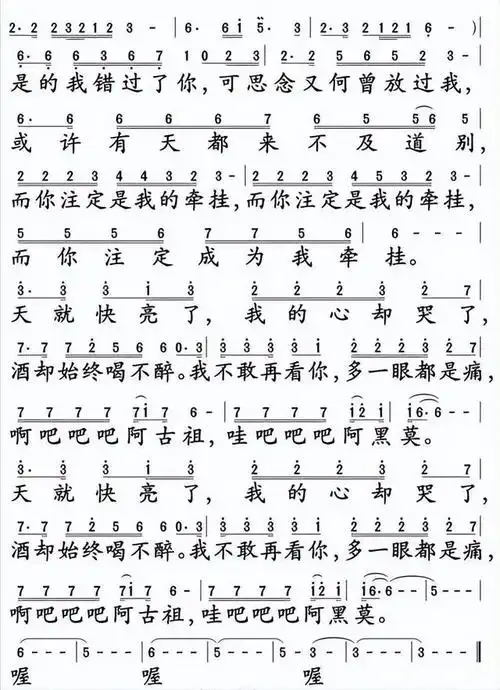 2· 2 2 3 2 1 2 3 - | 6· 6 i 5· 3 | 2· 3 2 1 2 1 6 - )|
6· 6 6 6 3 6 7 1 0 2 3 | 2· 2 5 6 6 5 3 2 2 |
是的我错过了你,可思念又何曾放过我,
6· 6 6 6 6 7 6 5 5 6 |
或许有天都来不及道别,
2 2 2 3 4 4 3 2 3 | 2 2 2 3 4 5 3 2 3 |
而你注定是我的牵挂,而你注定是我的牵挂,
5 5 5 6 7 7 5 6 | 6 - - - |
而你注定成为我牵挂。
3· 3 3 i 3 | 2 2 2 3 2 7 |
天就快亮了,我的心却哭了,
7· 7 7 2 5 6 6 0· 3 | 3 3 3 3 i 2 2 2 3 2 7 |
酒却始终喝不醉。我不敢再看你,多一眼都是痛,
7 7 7 7 7 i 7 6 - | 7 7 7 7 i 2 i | i 6· 6 - - |
啊吧吧吧阿古祖,哇吧吧吧阿黑莫。
3· 3 3 i 3 | 2 2 2 3 2 7 |
天就快亮了,我的心却哭了,
7· 7 7 2 5 6 6 0· 3 | 3 3 3 3 i 2 2 2 3 2 7 |
酒却始终喝不醉。我不敢再看你,多一眼都是痛,
7 7 7 7 7 i 7 6 - | 7 7 7 7 i 2 i | i 6· 6 - - | 5 - - - |
啊吧吧吧阿古祖,哇吧吧吧阿黑莫。
6 - - - | 5 - - - | 6 - - - | 5 - - - | 6 - 5 - | 3 - - - | 3 - - - ‖
喔 喔 喔